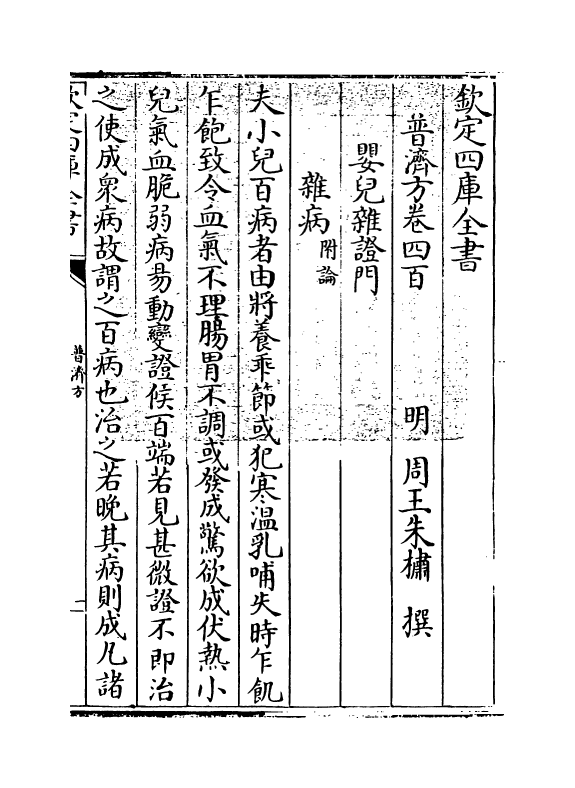 欽定四庫全書
普濟方卷四百　明　周王朱橚　撰
嬰兒雜證門
雜病附論
夫小兒百病者由將養乖節或犯寒溫乳哺失時乍飢
乍飽致令血氣不理腸胃不調或發成驚欲成伏熱小
兒氣血脆弱病易動變證候百端若見甚微證不即治
之使成衆病故謂之百病也治之若晚其病則成凡諸
欽定四庫全書
普濟方
一